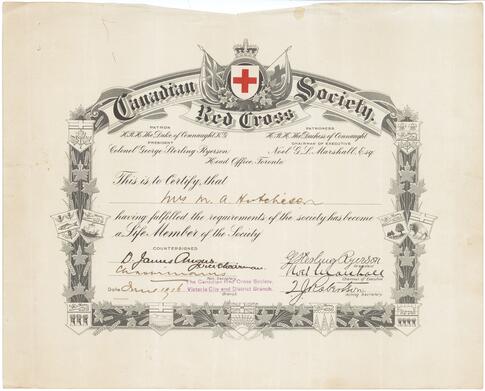 Canadian Red Cross Society.
PATRON
H.R.H. The Duke of Connaught K.G.
PATRONESS
H.R.H. The Duchess of Connaught
PRESIDENT
Colonel George Sterling Ryerson
CHAIRMAN OF EXECUTIVE
Noel G.L. Marshall, Esq.
Head Office, Toronto
This is to Certify, that
Mrs M. A. Hutcheson
having fulfilled the requirements of the society has become
a Life Member of the Society
COUNTERSIGNED
D. James Angus
Vice Chairman
G Sterling Ryerson
President
Noel Marshall
Chairman of Executive
Acting Secretary
Date 1916
The Canadian Red Cross Society,
Victoria City and District Branch.
Branch